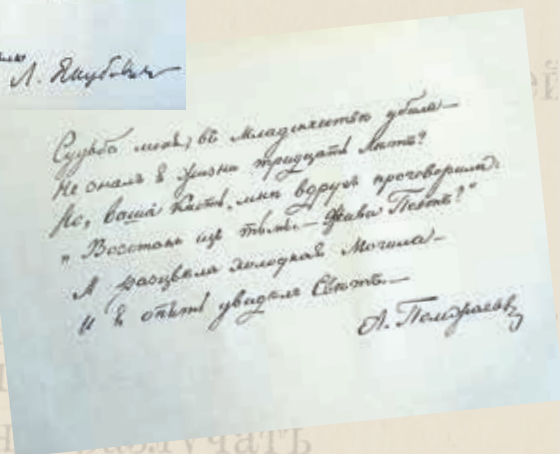 Л. Якубович
Судьба меня, въ младенчествѣ убила—
Не зналъ я жизни тридцать лѣтъ?
Но, ваша кисть, мнѣ вдругъ проговорила:
„Возстань изъ тьмы.— Живи Поэтъ?"
И разцвела холодная Могила—
И я опять увидѣлъ Свѣтъ.—
А. Полежаевъ
разлучать